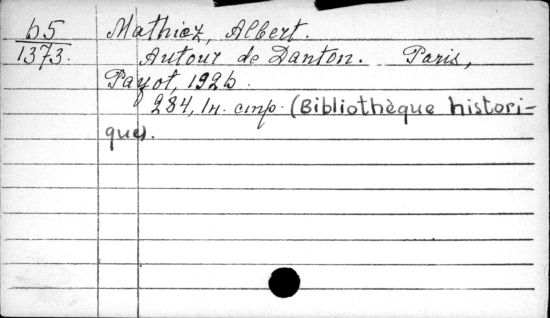 б5 Mathiez, Albert.
1373. Autour de Danton. Paris,
Payot, 1926.
284, 1н. стр. (Bibliothèque histori-
que).